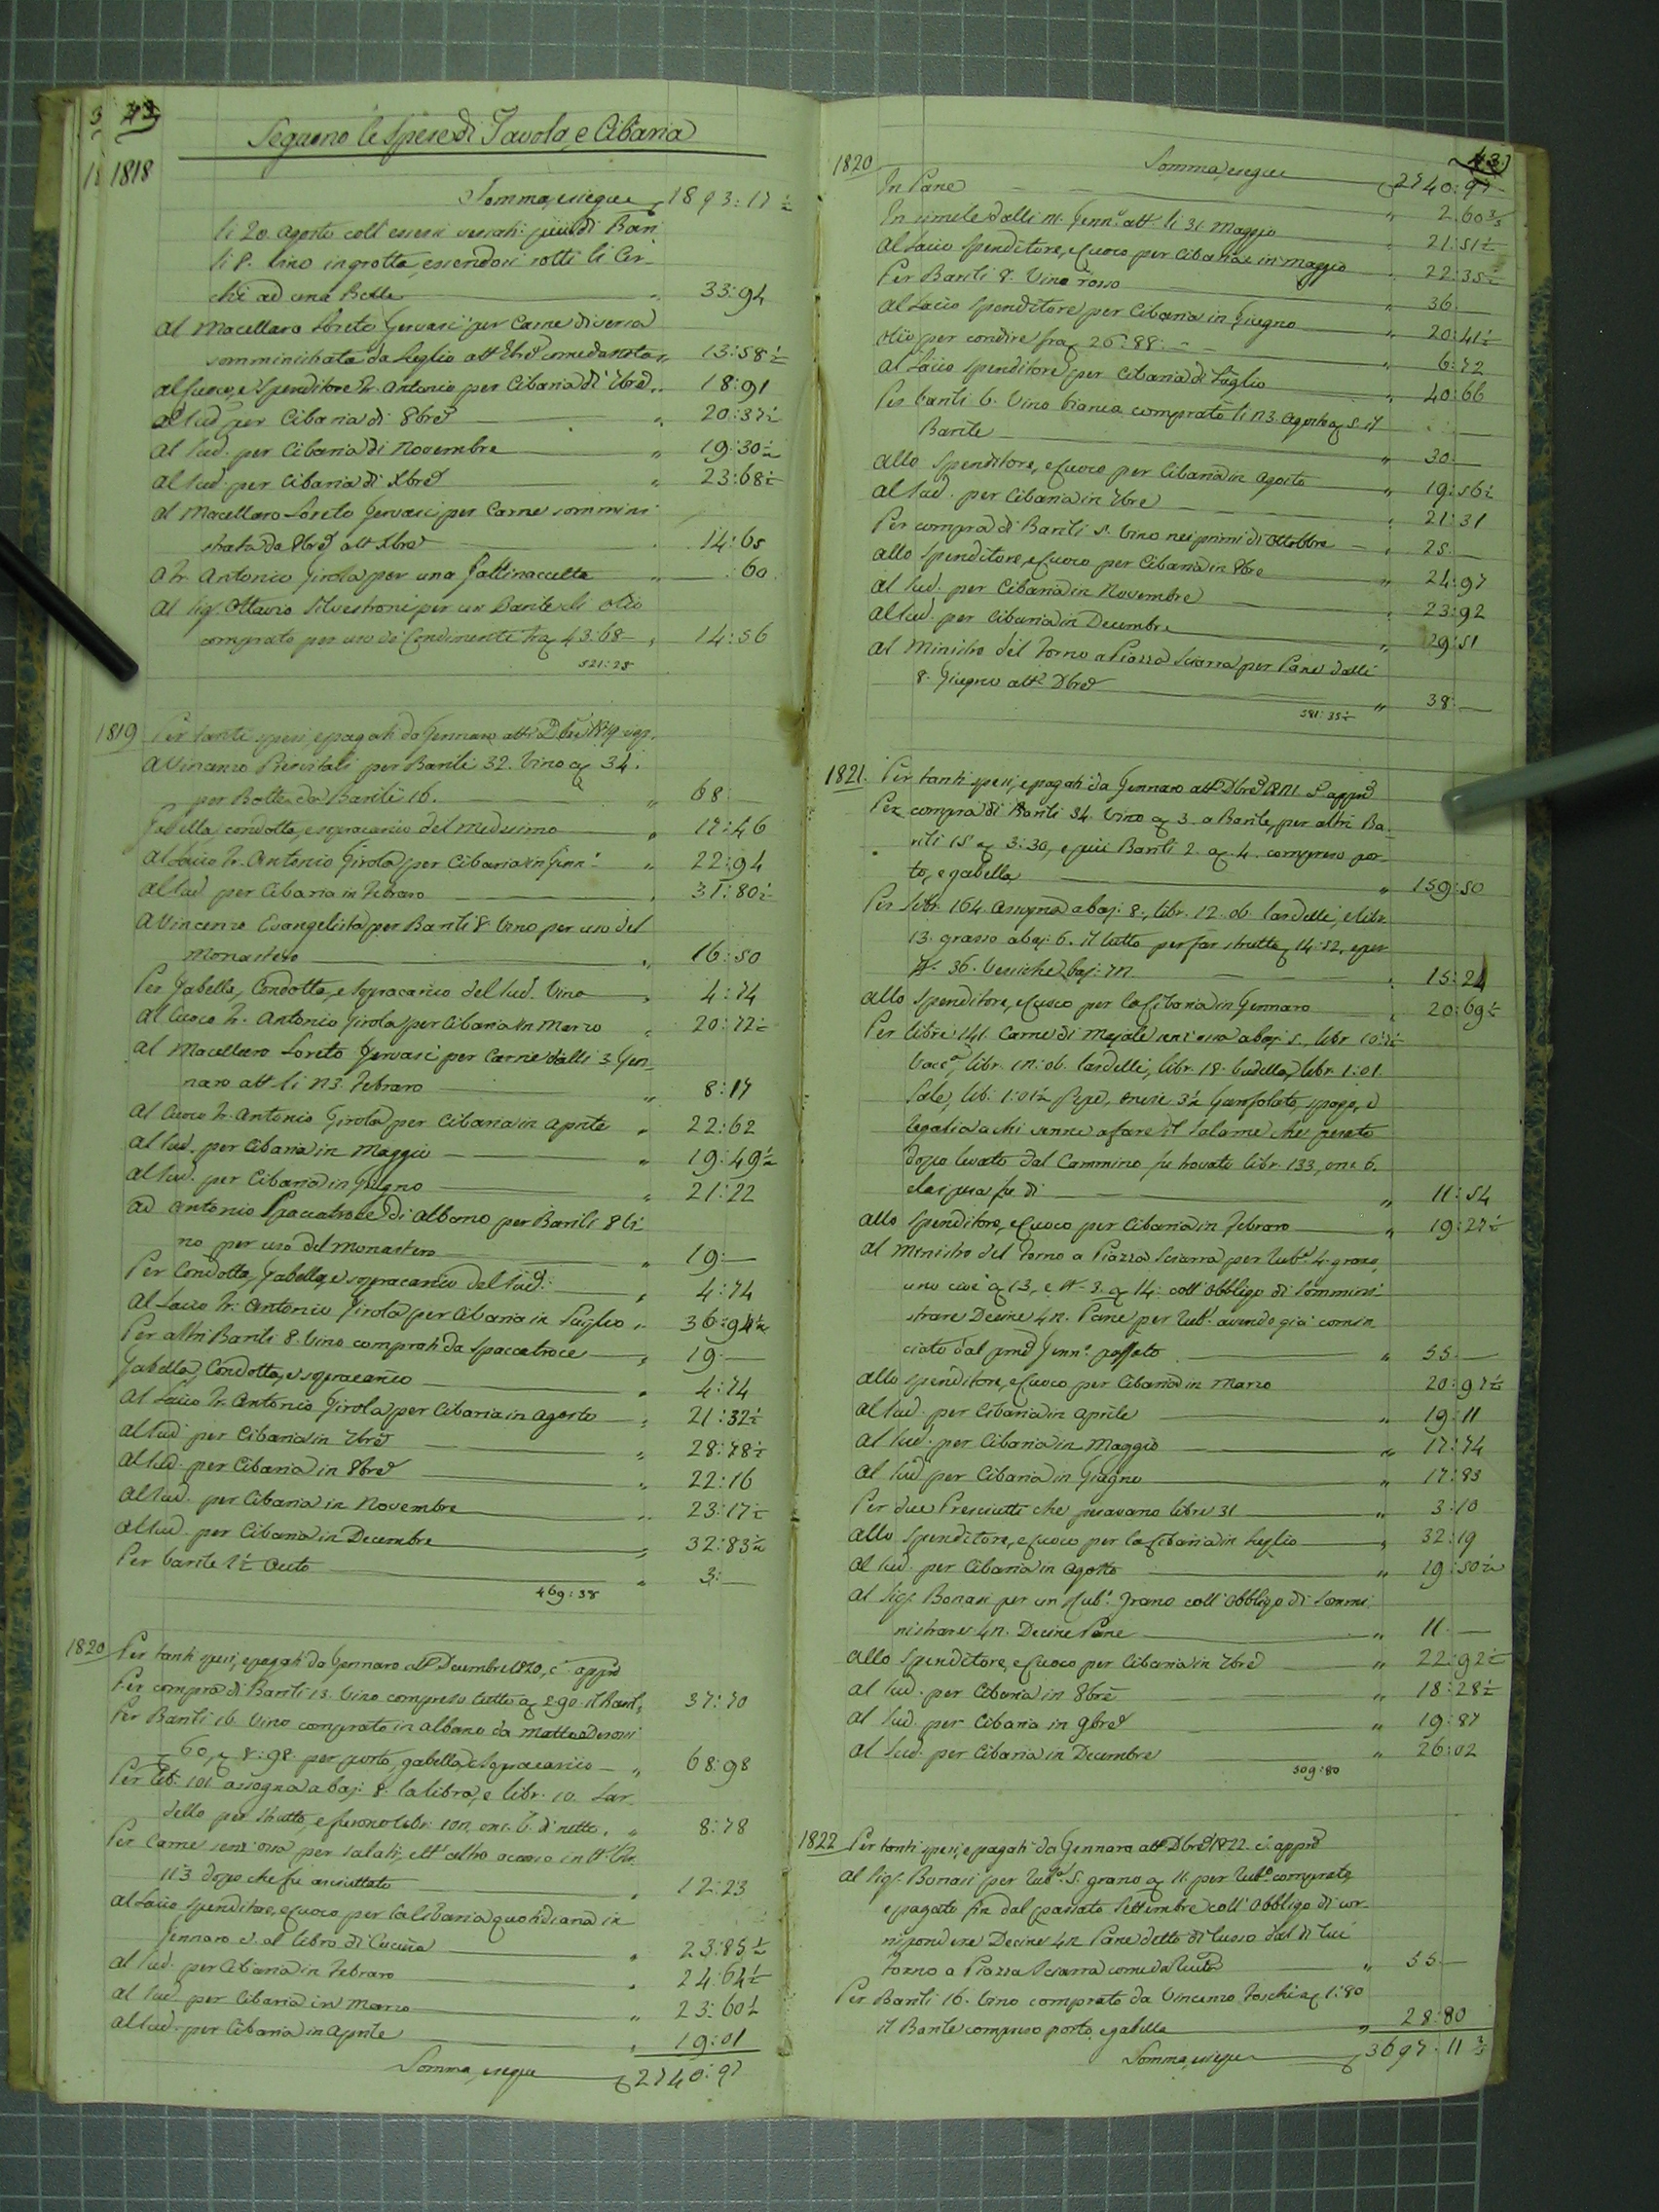 3 43
18 1818
Seguono le Spese di Tavola, e Cibaria
Somma, e segue 1893:17½
li 20. Agosto coll essersi versati più di Bari
li 8. Vino in grotta, essendosi rotti li Cer-
chi ad una Botte 33:94
Al Macellaro Loreto Gervasi per Carne diversa
somministrata da Luglio come da nota 13:58½
al Cuoco, e Spenditore Fr. Antonio per Cibaria di 7bre 18:91
al sud. per Cibaria di 8bre 20:37½
al sud. per Cibaria di Novembre 19:30½
al sud. per Cibaria di Xbre 23:68½
al Macellaro Loreto Gervasi per Carne sommini
strata da 8bre all Xbre 14:65
a Fr. Antonio Girola per una Gallinaccetta :60
al Sig. Ottavio Silvestroni per un Barile di olio
comprato per uso di Condimento 43.68 14:56
521:28
1819 Per tanti spesi, e pagati da Gennaro
a Vincenzo per Barili 32. Vino 34.
per Botte da Barili 16. 68:—
Gabella, condotta, e sopracarico del Medesimo 17:46
Al Laico Fr. Antonio Girola per Cibaria in Genn. 22:94
al sud. per Cibaria in Febraro 31:80½
a Vincenzo Evangelista per Barili 8. Vino per uso del
Monastero 16:50
Per Gabella, Condotta, e sopracarico del sud. Vino 4:74
al Cuoco Fr. Antonio Girola per Cibaria in Marzo 20:72½
al Macellaro Loreto Gervasi per Carne dalli 3. Gen-
naro all li Febraro 8:17
al Cuoco Fr. Antonio Girola per Cibaria in Aprile 22:62
al sud. per Cibaria in Maggio 19:49½
al sud. per Cibaria in Giugno 21:22
ad Antonio Spaccatroce di Albano per Barili 8 Vi
no per uso del Monastero 19:—
Per Condotta, Gabella, e sopracarico del sud. 4:74
al Laico Fr. Antonio Girola per Cibaria in Luglio 36:94½
Per altri Barili 8. Vino comprati da Spaccatroce 19:—
Gabella, Condotta, e sopracarico 4:74
al Laico Fr. Antonio Girola per Cibaria in Agosto 21:32½
al sud. per Cibaria in 7bre 28:78½
al sud. per Cibaria in 8bre 22:16
al sud. per Cibaria in Novembre 23:17½
al sud. per Cibaria in Decembre 32:83½
Per barile 1½ Aceto 3:—
469:38
1820 Per tanti spesi, e pagati da Gennaro all Decembre 1820, c. appo
Per compra di Barili 13. Vino compreso tutto a 2.90. il Baril. 37:70
Per Barili 16. Vino comprato in Albano da
60, 8:98. per porto, gabella, e sopracarico 68:98
Per Lib. 101. assogna a baj. 8. la libra, e libr. 10. Lar-
dello per strutto, e furono libr. onc. 6. di netto. 8:78
Per Carne senz'ossa per salati, ett'altro
113 dopo che fu asciuttato 12:23
al Laico spenditore, e Cuoco per la Cibaria quotidiana in
Gennaro c. al libro di Cucina 23:85½
al sud. per Cibaria in Febraro 24:64½
al sud. per Cibaria in Marzo 23:60½
al sud. per Cibaria in Aprile 19:01
Somma, e segue 2740:97
43
1820 Somma, e segue 2740:97
In Pane 2:60⅗
In simile dalli Genn. all. li 31. Maggio 21:51½
al Laico spenditore, e Cuoco per Cibaria in Maggio 22:35½
Per Barili 8. Vino rosso 36:—
al Laico spenditore per Cibaria in Giugno 20:41½
olio per condire 26:88. 6:72
al Laico spenditore per Cibaria di Luglio 40:66
Per barili 6. Vino bianco comprato li Agosto a 5. il
Barile 30:—
allo Spenditore, e Cuoco per Cibaria in Agosto 19:56½
al sud. per Cibaria in 7bre 21:31
Per compra di Barili 5. Vino nei primi di Ottobbre 25:—
allo Spenditore, e Cuoco per Cibaria in 8bre 24:97
al sud. per Cibaria in Novembre 23:92
al sud. per Cibaria in Decembre 29:51
al Ministro del Forno a Piazza Sciarra per Pane dalli
8. Giugno all Dbre 38:—
581:35½
1821. Per tanti spesi, e pagati da Gennaro all Dbre c. appo
Per compra di Barili 34. Vino a 3. a Barile, per altri Ba-
rili 15 a 3:30, e più Barili 2. a 4. compreso por-
to, e gabella 159:50
Per libr. 164. Assogna a baj. 8., libr. 12. ob. lardelli, e libr.
13. grasso a baj. 6. il tutto per far strutto 14:52, e per
N. 36. Vesiche baj. 15:24
allo Spenditore, e Cuoco per la Cibaria in Gennaro 20:69½
Per libre 141. Carne di Majale senz'ossa a baj. 5., libr. 10:
libr. ob. lardelli, libr. 18. budella, libr. 1:01
Sale, lib. 1:01½ Pepe, oncie 3½ Garofolato, spago, e
regalia a chi venne a fare il Salame che pesato
dopo levato dal Cammino fu trovato libr. 133, onc. 6.
e la spesa fu di 11:54
allo Spenditore, e Cuoco per Cibaria in Febraro 19:27½
al Ministro del Forno a Piazza Sciarra per Rub. 4. grano,
uno cioè a 13, e N. 3. a 14. coll'Obbligo di sommini
strare Decine 42. Pane per Rub. avendo già comin
ciato dal Genn. passato 55:—
allo Spenditore, e Cuoco per Cibaria in Marzo 20:97½
al sud. per Cibaria in Aprile 19:11
al sud. per Cibaria in Maggio 17:74
al sud. per Cibaria in Giugno 17:83
Per due Presciutti che pesavano libre 31 3:10
allo Spenditore, e Cuoco per la Cibaria in Luglio 32:19
al sud. per Cibaria in Agosto 19:50½
al Sig. Bonasi per un Rub. Grano coll'Obbligo di sommi
nistrare 42. Decine Pane 11:—
allo Spenditore, e Cuoco per Cibaria in 7bre 22:92½
al sud. per Cibaria in 8bre 18:28½
al sud. per Cibaria in 9bre 19:87
al sud. per Cibaria in Decembre 26:02
509:80
1822 Per tanti spesi, e pagati da Gennaro all Dbre 1822. c. appo
al Sig. Bonasi per Rub. 5. grano a 11. per Rub. comprato,
e pagato fin dal passato Settembre coll'Obbligo di cor-
rispondere Decine 42 Pane detto di lusso dal di lui
Forno a Piazza Sciarra 55:—
Per Barili 16. Vino comprato da Vincenzo Foschi a 1:80
il Barile compreso porto, e gabella 28:80
Somma, e segue 3697:11⅗